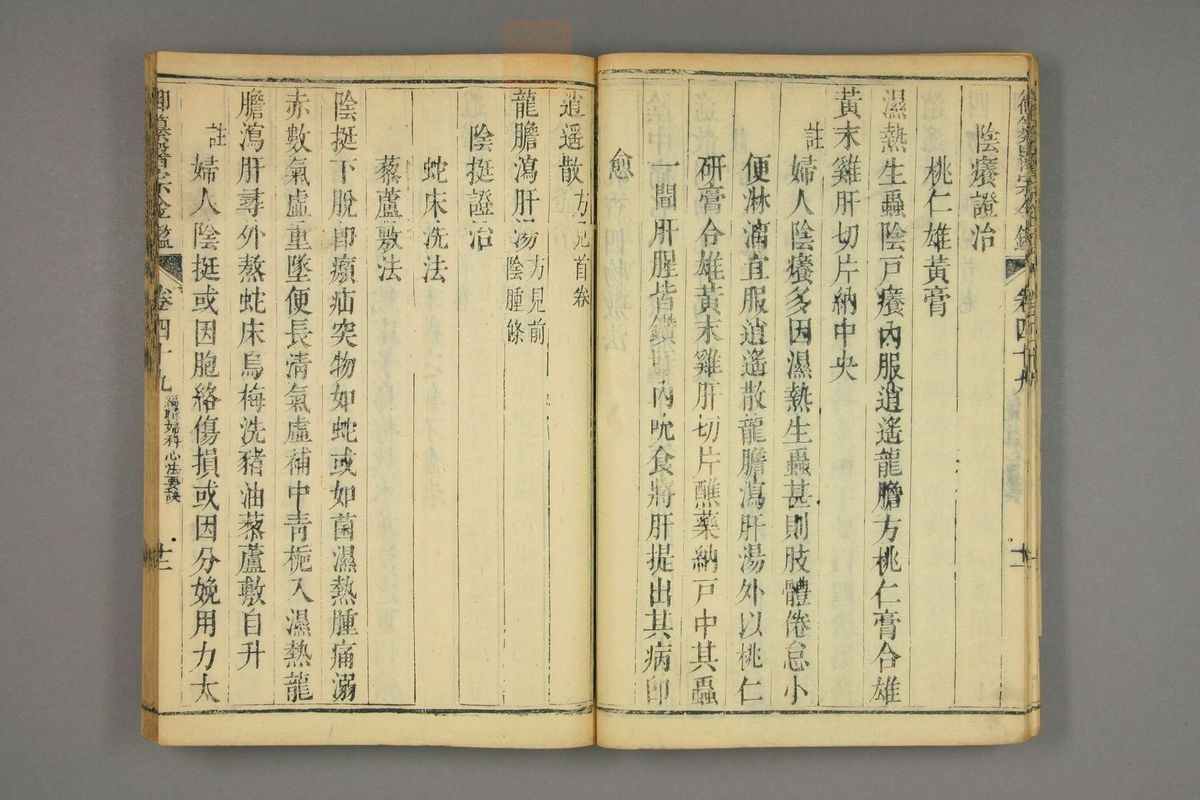 陰癢證治
桃仁雄黃膏
濕熱生蟲陰戶癢內服逍遙龍膽方桃仁膏合雄
黃末雞肝切片納中央
註婦人陰癢多因濕熱生蟲甚則肢體倦怠小
便淋漓宜服逍遙散龍膽瀉肝湯外以桃仁
研膏合雄黃末雞肝切片醮藥納戶中其蟲
一聞肝腥皆鑽肝內吮食將肝提出其病即
愈
逍遥散方見首卷
龍膽瀉肝湯方見前陰腫條
陰挺證治
蛇床洗法
藜蘆敷法
陰挺下脫即㿗疝突物如蛇或如菌濕熱腫痛溺
赤數氣虛重墜便長清氣虛補中青梔入濕熱龍
膽瀉肝尋外熬蛇床烏梅洗豬油藜蘆敷自升
註婦人陰挺或因胞絡傷損或因分娩用力太
御纂醫宗金鑑
卷四十九
編輯婦科心法要訣